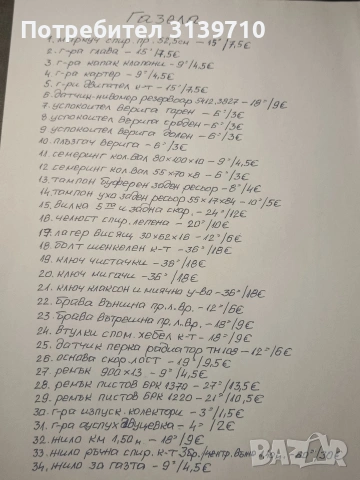 Газела
Потребител 3139710
1. маркуч спир. пр. 52,5см - 15°/7,5€
2. г-ра глава - 15°/7,5€
3. г-ра капак клапани - 9°/4,5€
4. г-ра картер - 9°/4,5€
5. г-ри двигател к-т - 15°/7,5€
6. датчик-нивомер резервоар 5412.3827 - 18°/9€
7. успокоител верига горен - 6°/3€
8. успокоител верига среден - 6°/3€
9. успокоител верига долен - 6°/3€
10. плъзгач верига - 6°/3€
11. семеринг кол.вал 80х100х10 - 9°/4,5€
12. семеринг кол.вал 55х70х8 - 6°/3€
13. тампон буферен заден ресьор - 8°/4€
14. тампон ухо заден ресьор 55х17х84 - 10°/5€
15. вилка 5та и задна скор. - 24°/12€
16. челюст спир. лепена - 20°/10€
17. лагер висящ 30х62х16 - 12°/6€
18. болт шенкелен к-т - 36°/18€
19. ключ чистачки - 36°/18€
20. ключ мигачи - 36°/18€
21. ключ клаксон и миячно у-во - 36°/18€
22. брава външна пр.л.вр. - 12°/6€
23. брава вътрешна пр.л.вр. - 18°/9€
24. втулки спом. хебел к-т - 18°/9€
25. датчик перка радиатор ТМ108 - 12°/6€
26. основа скор. лост - 19°/9,5€
27. ремък 900х13 - 9°/4,5€
28. ремък пистов 6РК 1370 - 27°/13,5€
29. ремък пистов 6РК 1220 - 21°/10,5€
30. г-ра изпуск. колектори - 3°/1,5€
31. г-ра ауспух двуцевка - 4°/2€
32. жило км 1,50м - 18°/9€
33. жило ръчна спир. к-т 3бр.
34. жило за газта - 9°/4,5€
bazar